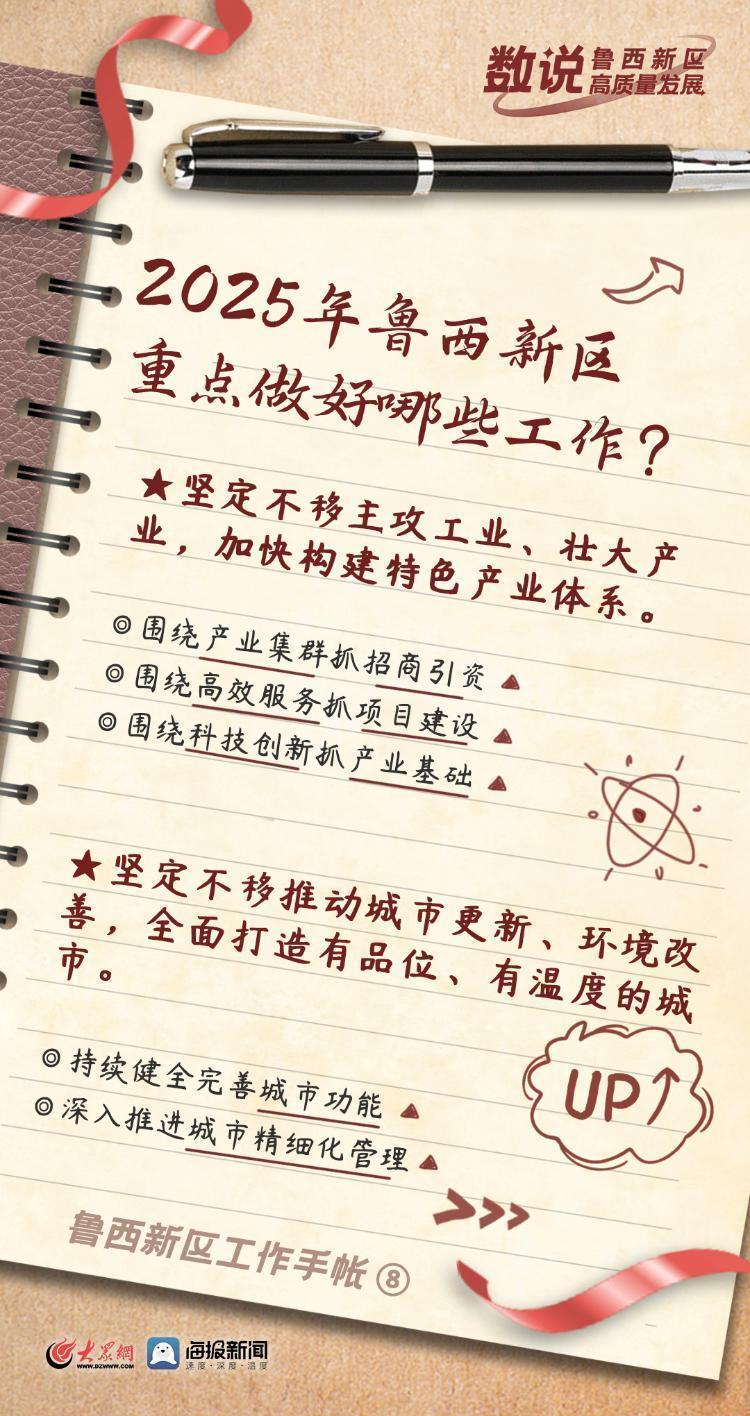 数说 鲁西新区
高质量发展
2025年鲁西新区
重点做好哪些工作？
★坚定不移主攻工业、壮大产
业，加快构建特色产业体系。
◎围绕产业集群抓招商引资▲
◎围绕高效服务抓项目建设▲
◎围绕科技创新抓产业基础▲
★坚定不移推动城市更新、环境改
善，全面打造有品位、有温度的城
市。
UP
◎持续健全完善城市功能▲
◎深入推进城市精细化管理▲
鲁西新区工作手帐⑧
大眾網
WWW.DZWWW.COM
海报新闻
速度·深度·温度